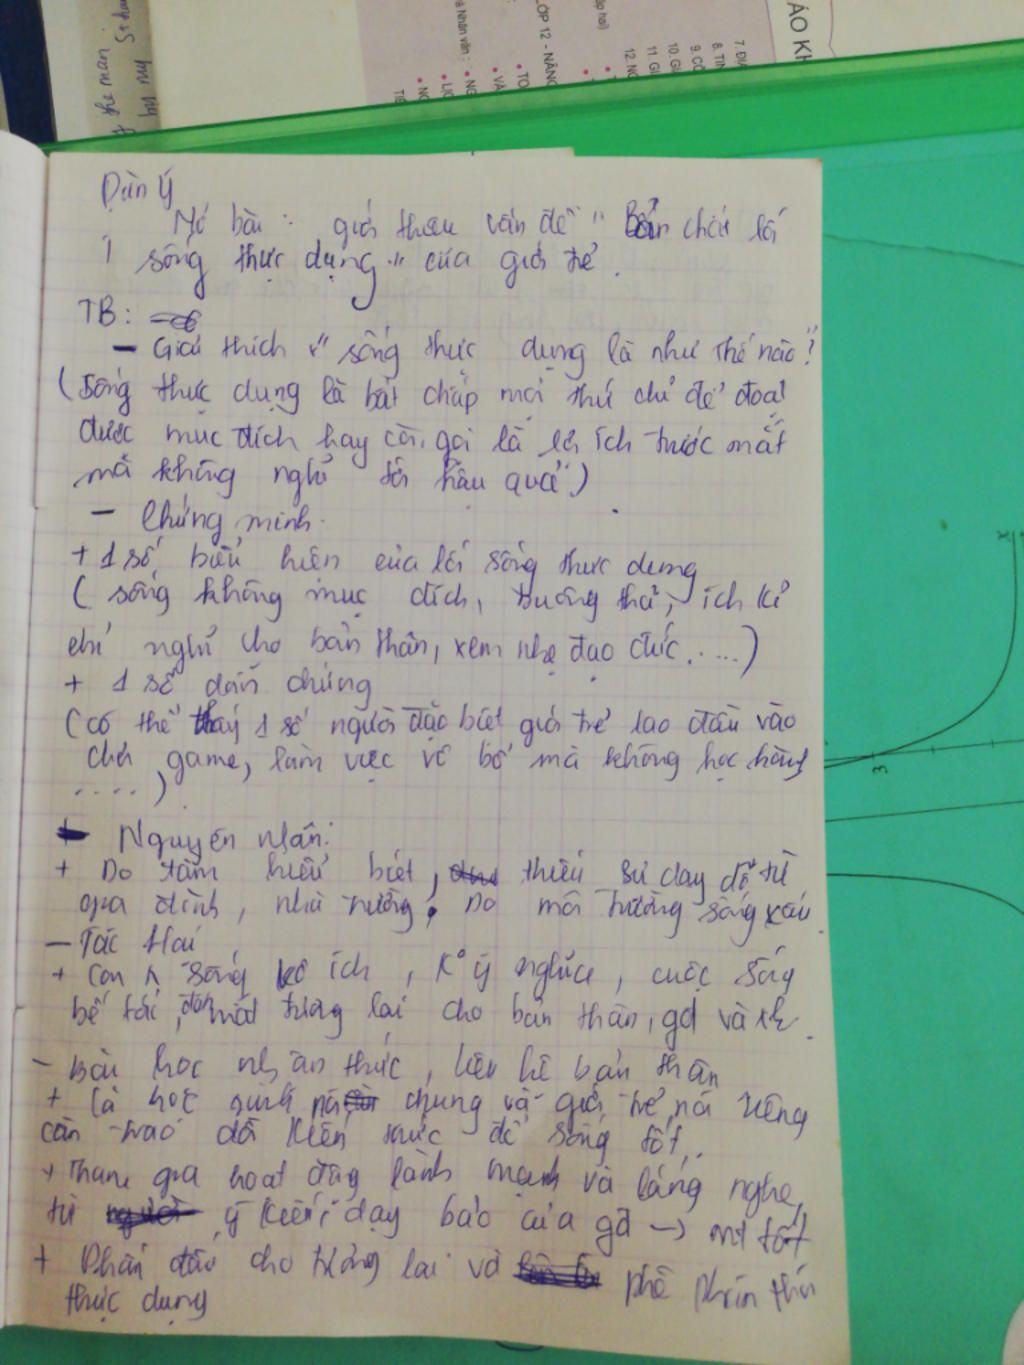 the man
by my
à Nhân văn :
LỚP 12 - NÂNG
ÁO KH
7. ĐỊA
8. TIN
9. CÔ
10. GI
11. GI
12. NG
Dàn ý
Mở bài : giới thiệu vấn đề " Bản chất lối
sống thực dụng " của giới trẻ .
TB :
- Giải thích " sống thực dụng là như thế nào ?"
( Sống thực dụng là bất chấp mọi thứ chỉ để đoạt
được mục đích hay còn gọi là lợi ích trước mắt
mà không nghĩ tới hậu quả )
- Chứng minh
+ 1 số biểu hiện của lối sống thực dụng
( sống không mục đích, buông thả, ích kỉ
chỉ nghĩ cho bản thân, xem nhẹ đạo đức .....)
+ 1 số dẫn chứng
(có thể thấy 1 số người đặc biệt giới trẻ lao đầu vào
chơi game, làm việc vô bổ mà không học hành
....)
Nguyên nhân:
+ Do tầm hiểu biết, thiếu sự dạy dỗ từ
gia đình, nhà trường, Do môi trường sống xấu
- Tác Hại
+ Con n sống ko ích, ko ý nghĩa, cuộc sống
bế tắc, đánh mất tương lai cho bản thân, gđ và xh
- Bài học nhận thức, liên hệ bản thân
+ Là học sinh nói chung và giới trẻ nói riêng
cần trao dồi kiến thức để sống tốt.
+ Tham gia hoạt động lành mạnh và lắng nghe
từ ý kiến dạy bảo của gđ → mt tốt
+ Phấn đấu cho tương lai và phê phán thói
thực dụng
3